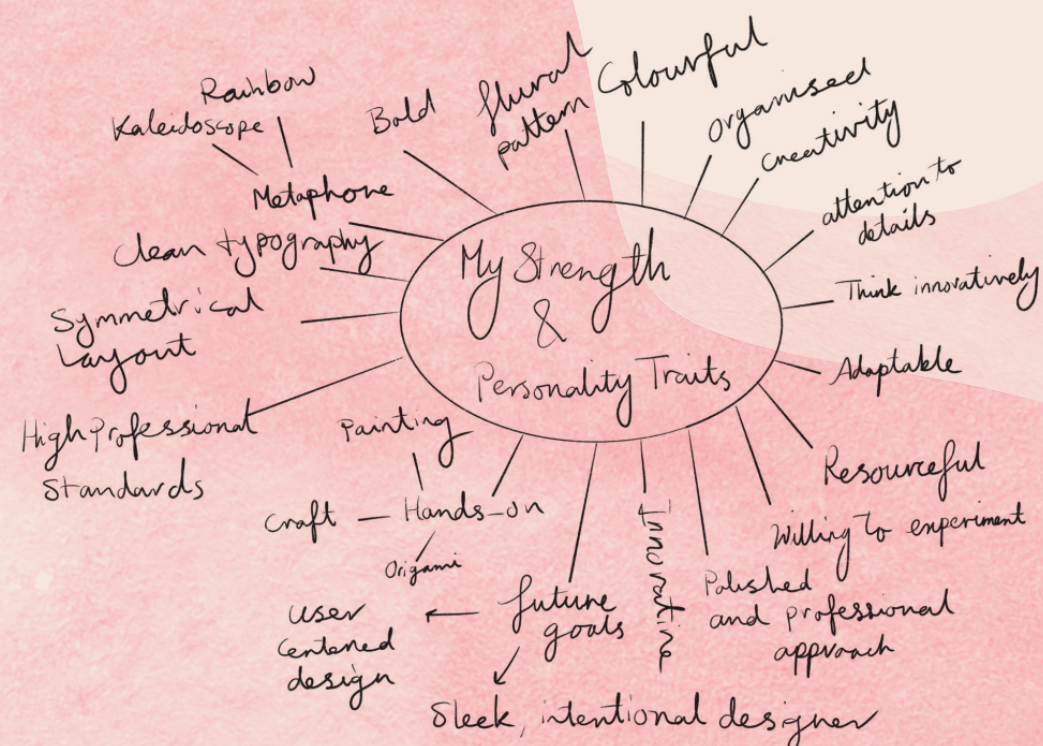 My Strength
&
Personality Traits
Rainbow
Kaleidoscope
Metaphore
Bold
flural
pattern
Colourful
organised
creativity
attention to
details
Think innovatively
Adaptable
Resourceful
Willing To experiment
Polished
and professional
approach
Innovative
future
goals
user
centered
design
Sleek, intentional designer
Hands-on
Painting
Craft
Origami
High Professional
Standards
Symmetrical
Layout
Clean typography